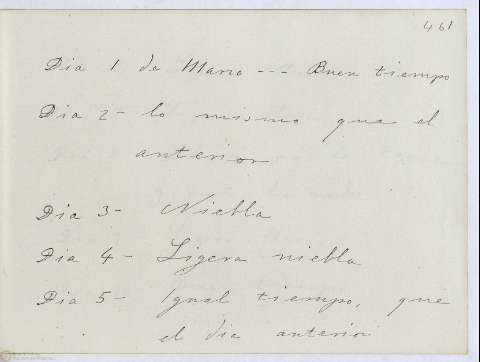 461
Dia 1 de Marzo --- Buen tiempo
Dia 2 - lo mismo que el
anterior
Dia 3 - Niebla
Dia 4 - Ligera niebla
Dia 5 - Igual tiempo, que
el dia anterior